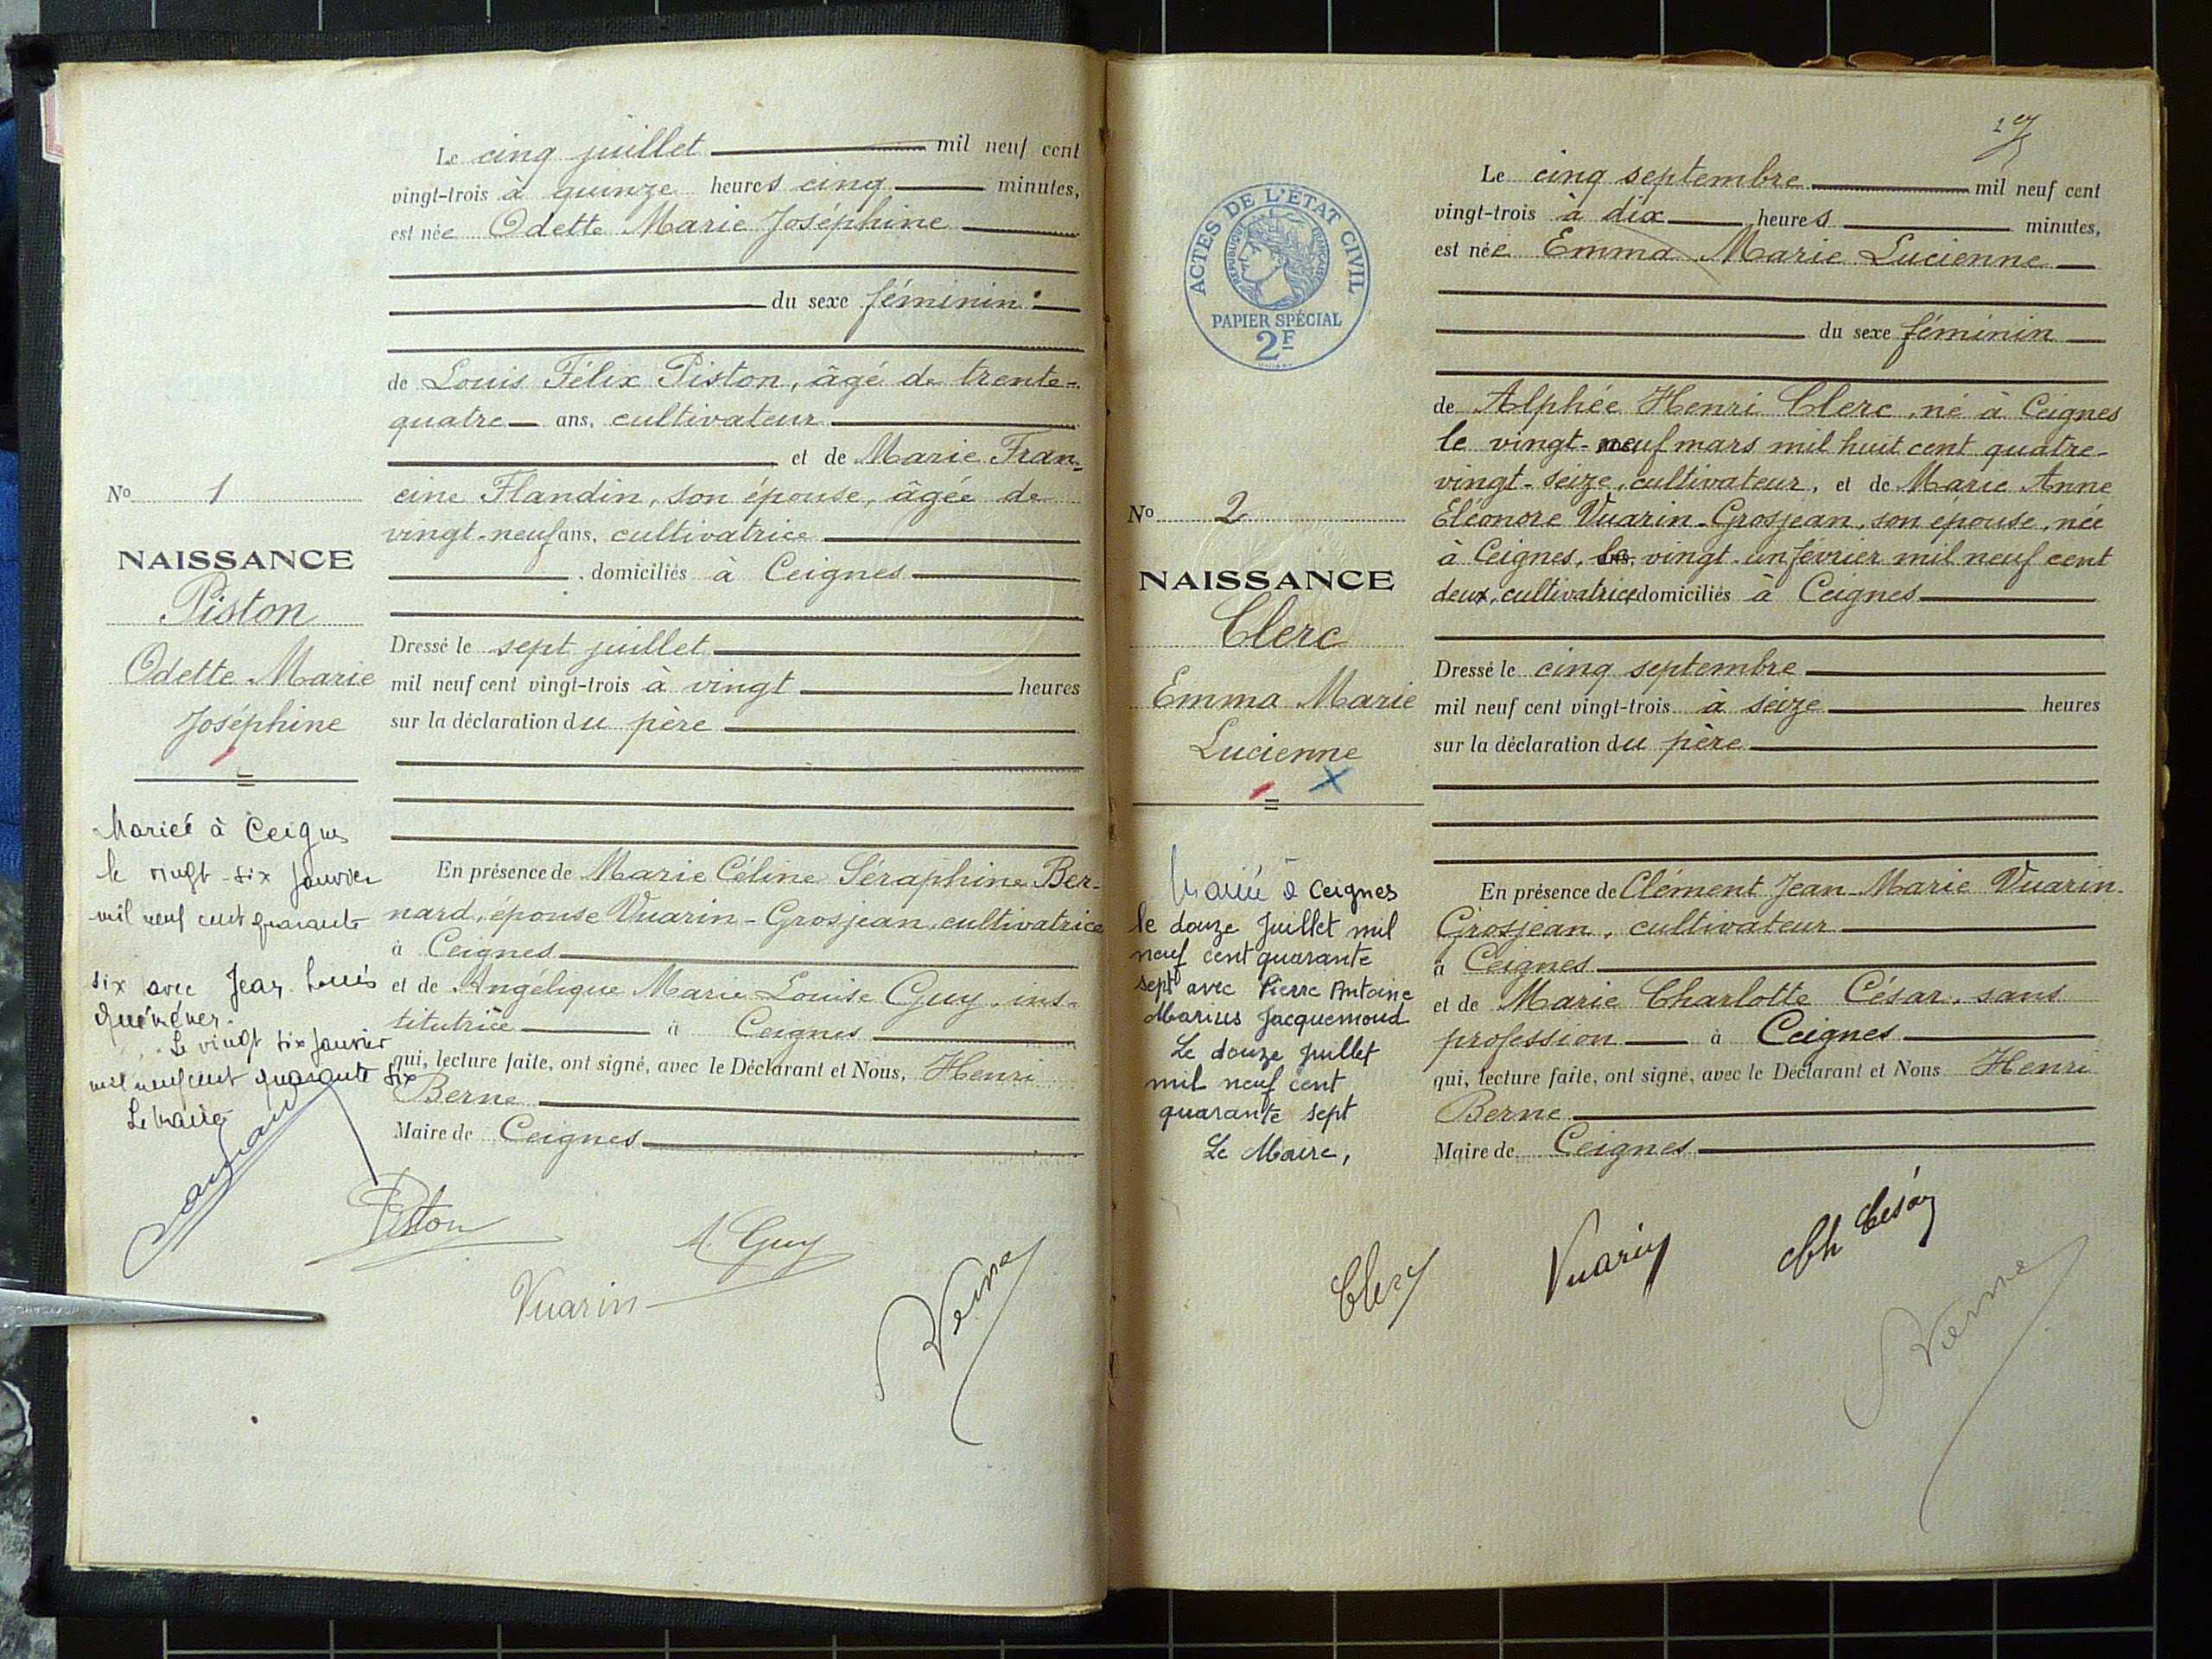 Le cinq juillet mil neuf cent
vingt-trois à quinze heures cinq minutes,
est née Odette Marie Joséphine
du sexe féminin
de Louis Félix Piston, âgé de trente-
quatre ans, cultivateur
et de Marie Fran-
cine Flandin, son épouse, âgée de
vingt-neuf ans, cultivatrice
domiciliés à Ceignes
Dressé le sept juillet
mil neuf cent vingt-trois à vingt heures
sur la déclaration du père
En présence de Marie Céline Séraphine Ber-
nard, épouse Vuarin-Grosjean, cultivatrice
à Ceignes
et de Angélique Marie Louise Guy, ins-
titutrice à Ceignes
qui, lecture faite, ont signé, avec le Déclarant et Nous, Henri
Berne
Maire de Ceignes
No 1
NAISSANCE
Piston
Odette Marie
Joséphine
Mariée à Ceignes
le vingt-six janvier
mil neuf cent quarante
six avec Jean Louis
Le vingt six janvier
mil neuf cent quarante six
Le Maire
Piston
A. Guy
Vuarin
Berne
ACTES DE L'ÉTAT CIVIL
RÉPUBLIQUE FRANÇAISE
PAPIER SPÉCIAL
2F
No 2
NAISSANCE
Clerc
Emma Marie
Lucienne
Mariée à Ceignes
le douze Juillet mil
neuf cent quarante
sept avec Pierre Antoine
Marius Jacquemoud
Le douze juillet
mil neuf cent
quarante sept
Le Maire,
Le cinq septembre mil neuf cent
vingt-trois à dix heures minutes,
est née Emma Marie Lucienne
du sexe féminin
de Alphée Henri Clerc, né à Ceignes
le vingt-neuf mars mil huit cent quatre-
vingt-seize, cultivateur, et de Marie Anne
Eléonore Vuarin-Grosjean, son épouse, née
à Ceignes, le vingt-un février mil neuf cent
deux, cultivatrice, domiciliés à Ceignes
Dressé le cinq septembre
mil neuf cent vingt-trois à seize heures
sur la déclaration du père
En présence de Clément Jean-Marie Vuarin-
Grosjean, cultivateur
à Ceignes
et de Marie Charlotte César, sans
profession à Ceignes
qui, lecture faite, ont signé, avec le Déclarant et Nous Henri
Berne
Maire de Ceignes
Clerc
Vuarin
Ch César
Berne